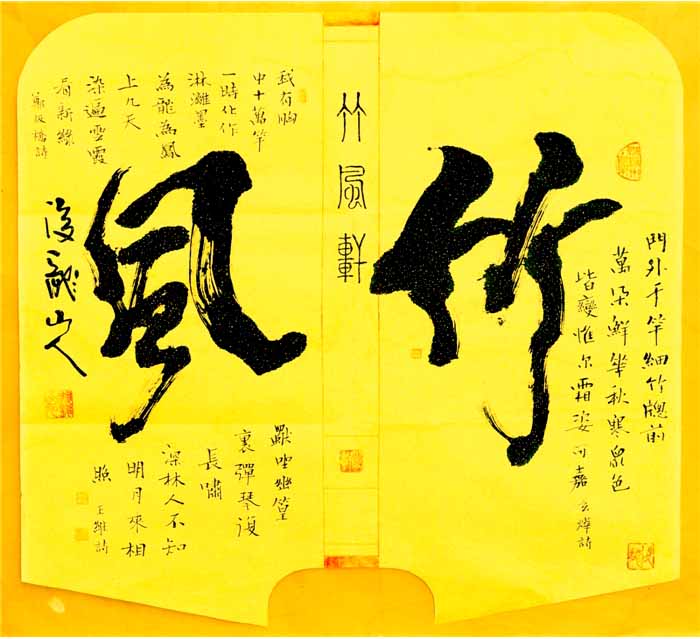 門外千竿細竹牕前
萬朵鮮華秋寒眾色
皆變惟尔霜姿可嘉 玄燁詩
竹
竹風軒
我有胸
中十萬竿
一時化作
淋灕墨
為龍為鳳
上九天
染遍雲霞
看新綠
鄭板橋詩
風
獨坐幽篁
裏彈琴復
長嘯
深林人不知
明月來相
照 王維詩
龍山人